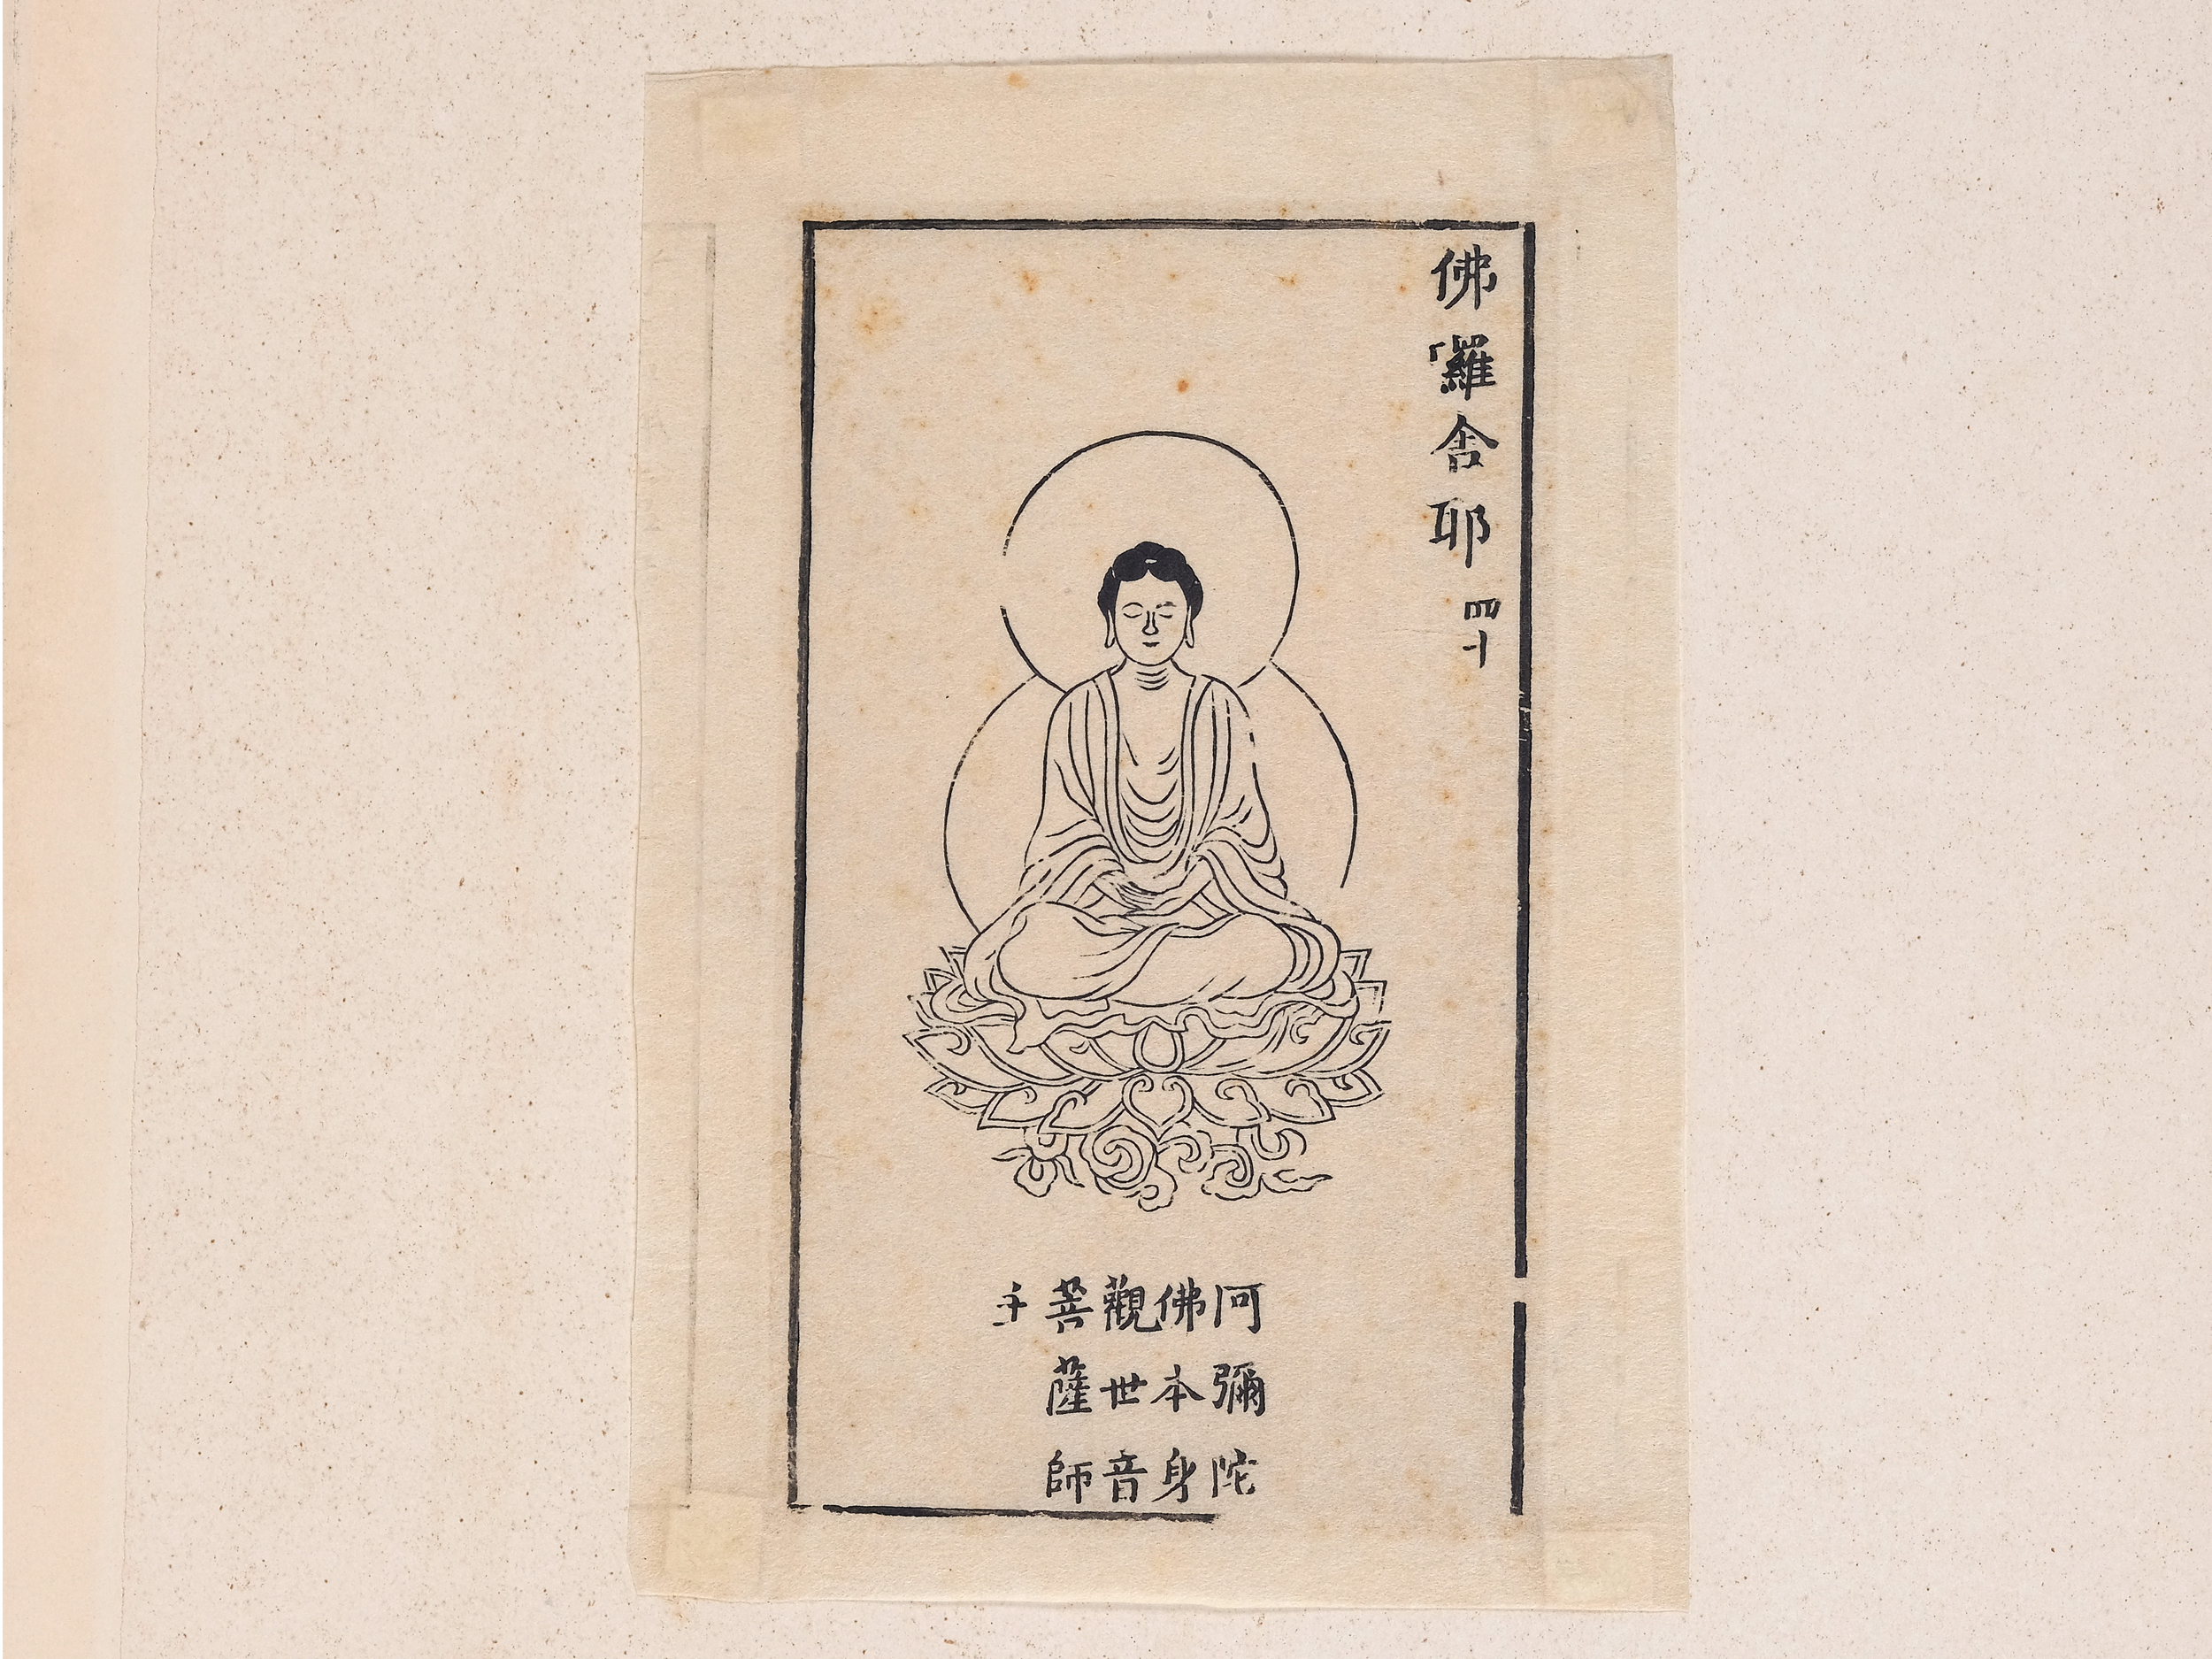 佛囉舍耶 四十
阿彌陀
佛本身
觀世音
菩薩師